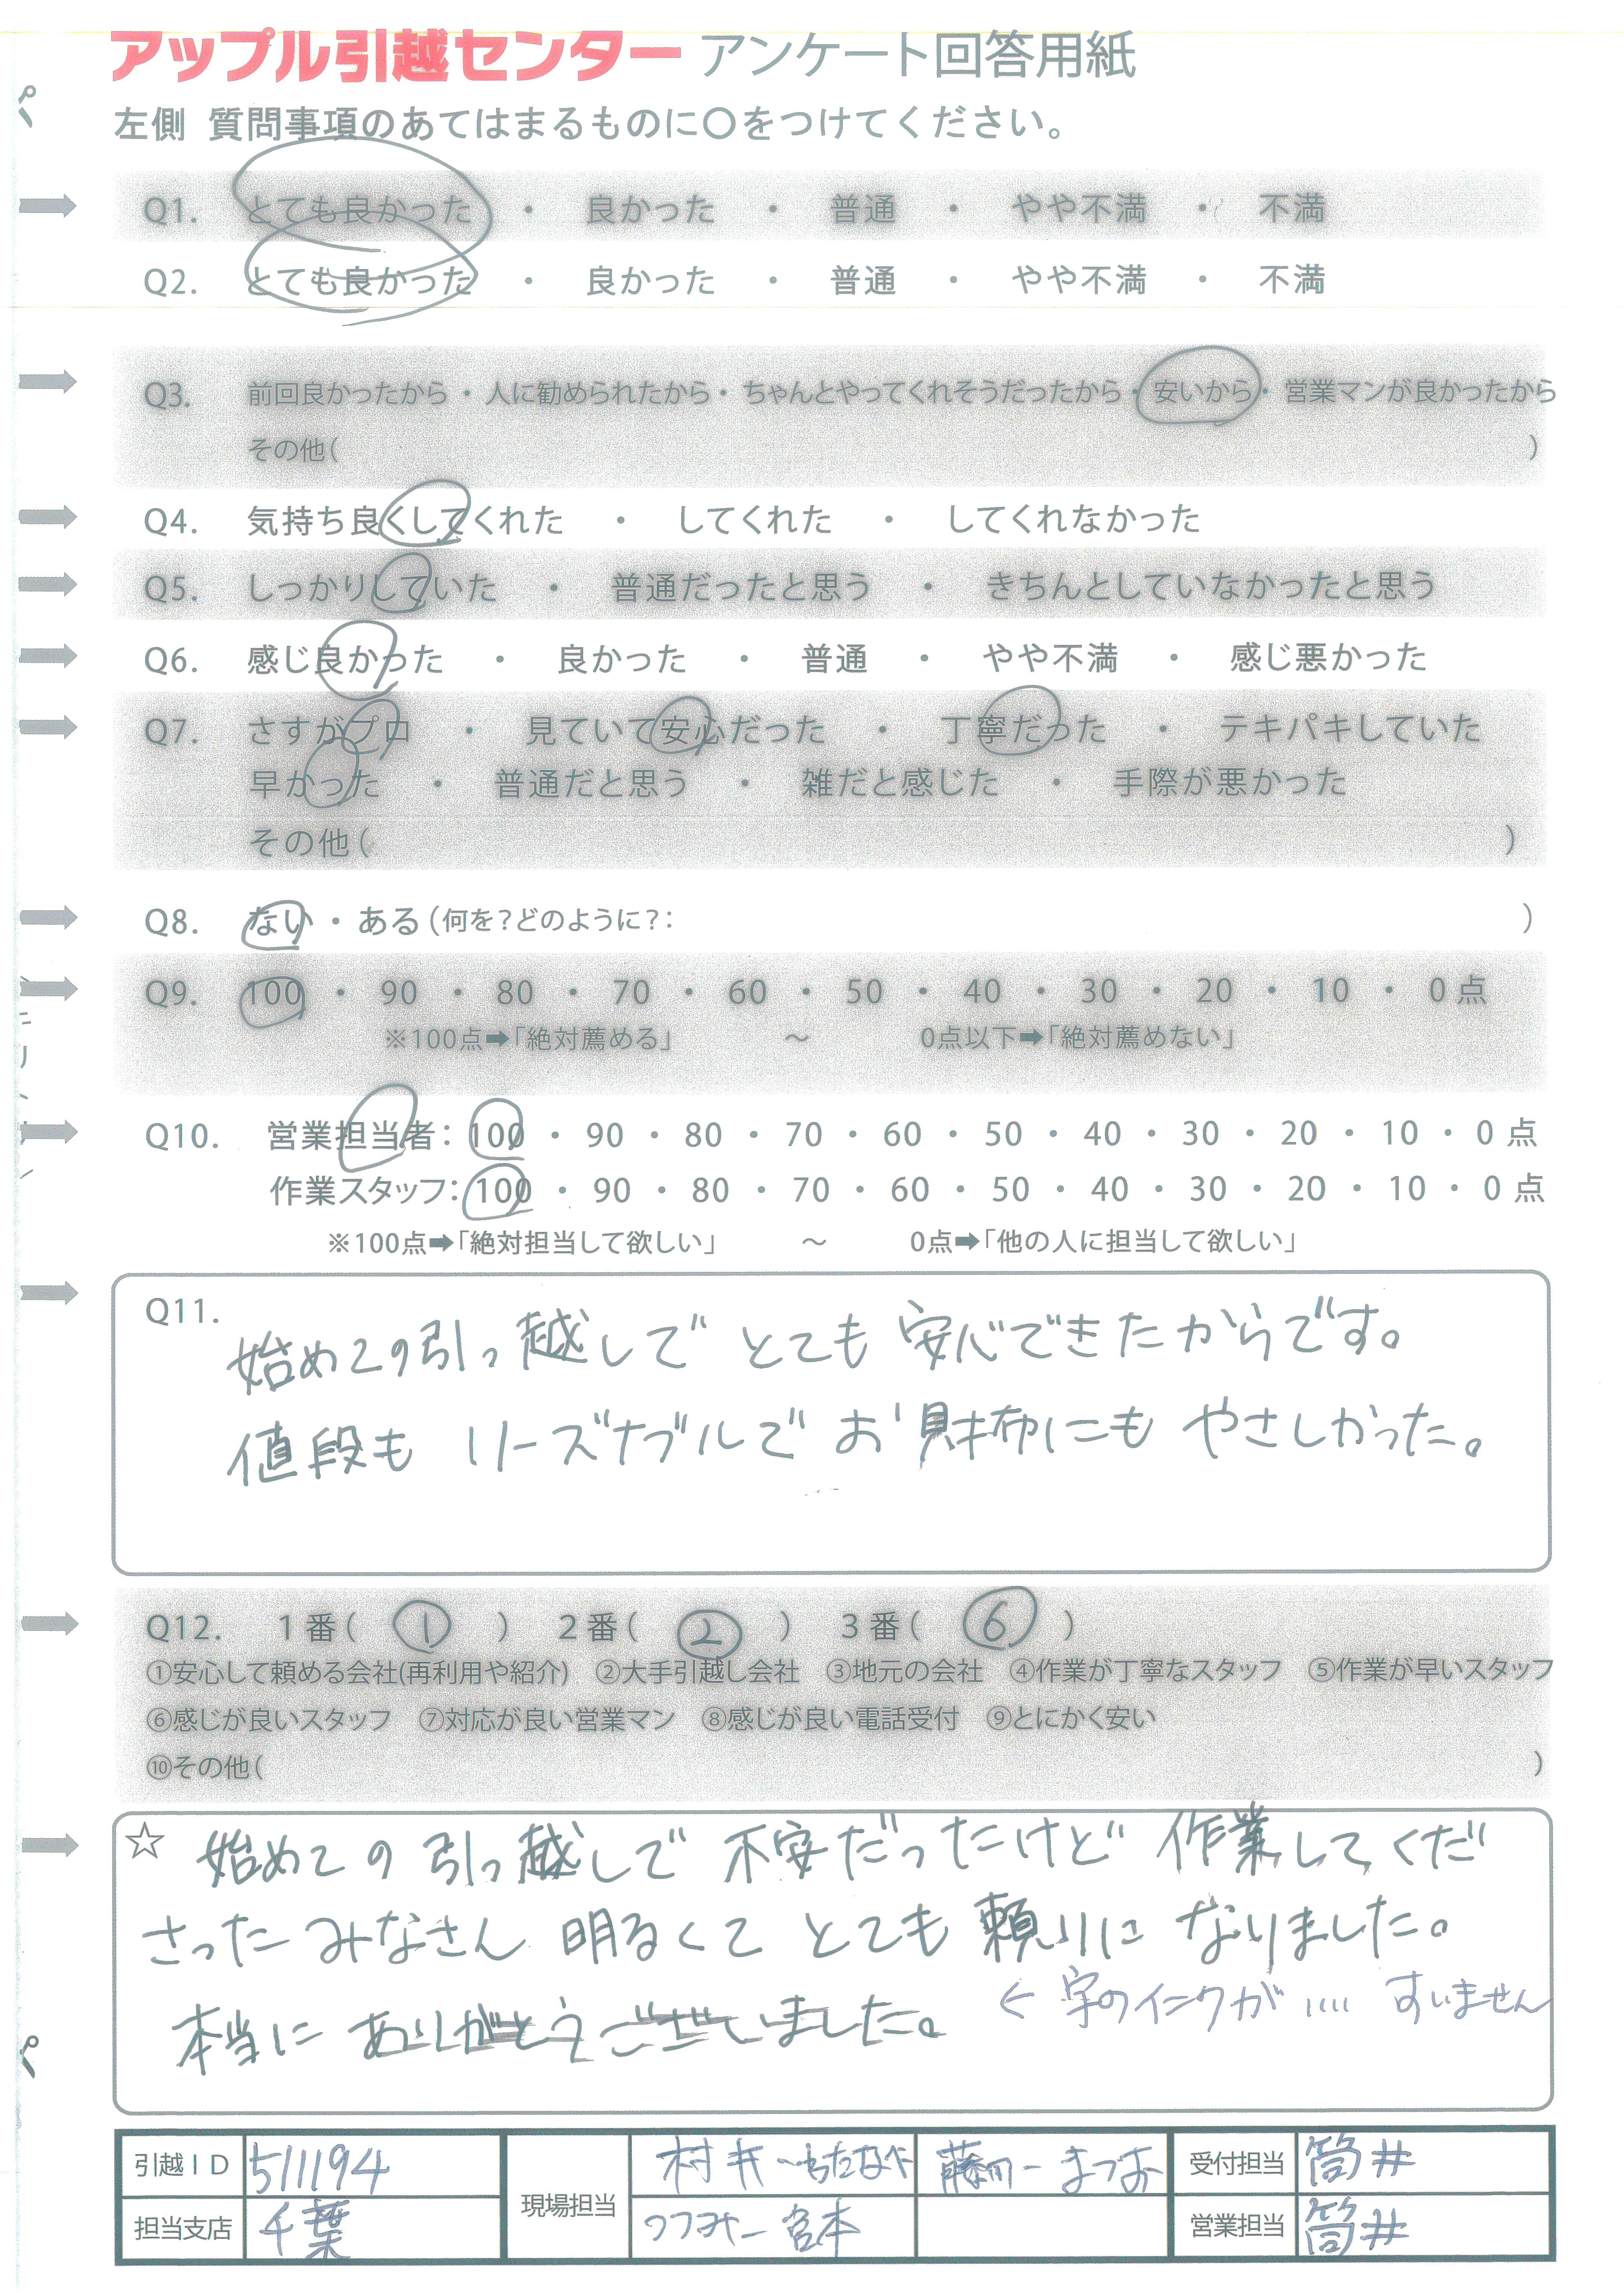 アップル引越センター アンケート回答用紙
左側 質問事項のあてはまるものに〇をつけてください。
Q1. とても良かった ・ 良かった ・ 普通 ・ やや不満 ・ 不満
Q2. とても良かった ・ 良かった ・ 普通 ・ やや不満 ・ 不満
Q3. 前回良かったから ・ 人に勧められたから ・ ちゃんとやってくれそうだったから ・ 安いから ・ 営業マンが良かったから
その他( )
Q4. 気持ち良くしてくれた ・ してくれた ・ してくれなかった
Q5. しっかりしていた ・ 普通だったと思う ・ きちんとしていなかったと思う
Q6. 感じ良かった ・ 良かった ・ 普通 ・ やや不満 ・ 感じ悪かった
Q7. さすがプロ ・ 見ていて安心だった ・ 丁寧だった ・ テキパキしていた
早かった ・ 普通だと思う ・ 雑だと感じた ・ 手際が悪かった
その他( )
Q8. ない ・ ある(何を?どのように?: )
Q9. 100 ・ 90 ・ 80 ・ 70 ・ 60 ・ 50 ・ 40 ・ 30 ・ 20 ・ 10 ・ 0 点
※100点➡「絶対薦める」 ～ 0点以下➡「絶対薦めない」
Q10. 営業担当者: 100 ・ 90 ・ 80 ・ 70 ・ 60 ・ 50 ・ 40 ・ 30 ・ 20 ・ 10 ・ 0 点
作業スタッフ: 100 ・ 90 ・ 80 ・ 70 ・ 60 ・ 50 ・ 40 ・ 30 ・ 20 ・ 10 ・ 0 点
※100点➡「絶対担当して欲しい」 ～ 0点➡「他の人に担当して欲しい」
Q11.
始めての引っ越しでとても安心できたからです。
値段もリーズナブルでお財布にもやさしかった。
Q12. 1番( ① ) 2番( ② ) 3番( ⑥ )
①安心して頼める会社(再利用や紹介) ②大手引越し会社 ③地元の会社 ④作業が丁寧なスタッフ ⑤作業が早いスタッフ
⑥感じが良いスタッフ ⑦対応が良い営業マン ⑧感じが良い電話受付 ⑨とにかく安い
⑩その他( )
☆ 始めての引っ越しで不安だったけど作業してくだ
さったみなさん明るくてとても頼りになりました。
本当にありがとうございました。 ← 字のインクが…. すいません
引越ID 511194 現場担当 村井 藤田-まつお 受付担当 筒井
担当支店 千葉 宮本 営業担当 筒井